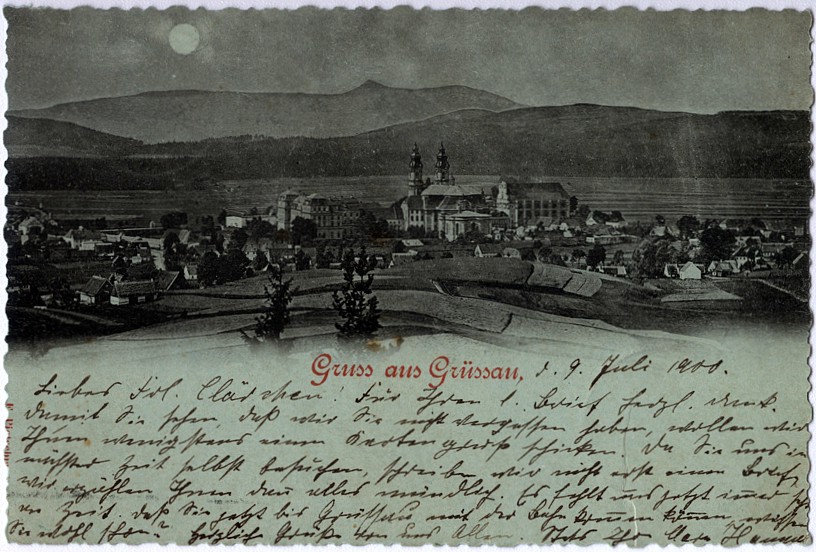 Gruss aus Grüssau, d. 9. Juli 1900.
Liebes Frl. Clärchen! Für Ihren l. Brief herzl. Dank.
Damit Sie sehen, daß wir Sie nicht vergessen haben, wollen wir
Ihnen wenigstens einen Kartengruß schicken. Da Sie uns in
nächster Zeit selbst besuchen, schreiben wir nicht erst einen Brief,
wir erzählen Ihnen dann alles mündlich. Es fehlt uns jetzt immer
an Zeit. Daß Sie jetzt bis Grüssau mit der Bahn kommen können, wissen
Sie wohl schon? Herzliche Grüße von uns Allen. Stets